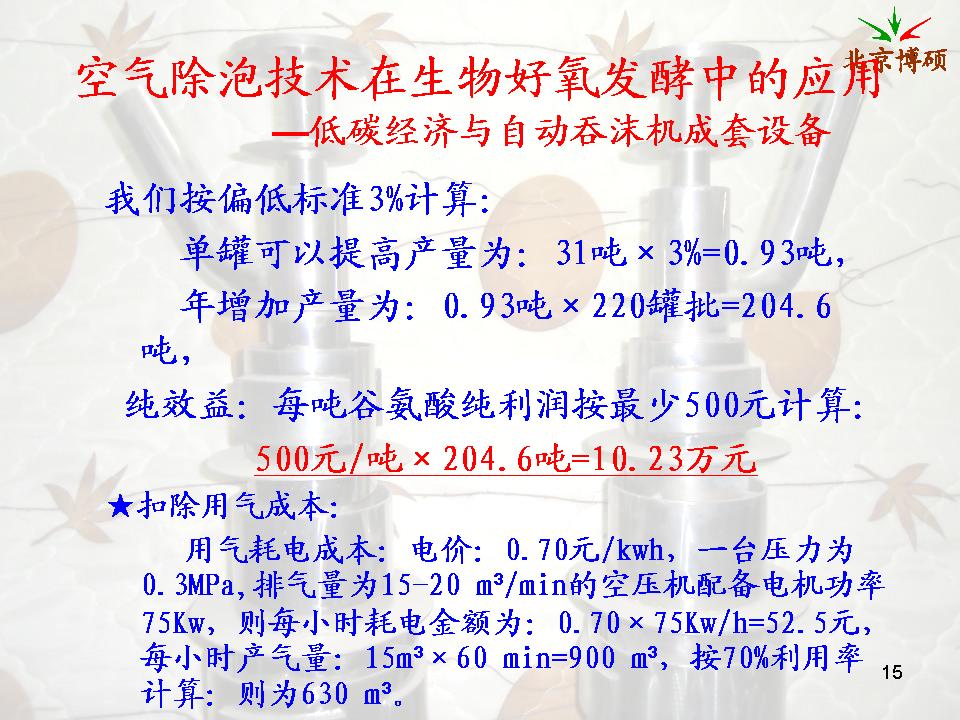 北京博硕
空气除泡技术在生物好氧发酵中的应用
—低碳经济与自动吞沫机成套设备
我们按偏低标准3%计算：
单罐可以提高产量为：31吨×3%=0.93吨，
年增加产量为：0.93吨×220罐批=204.6
吨，
纯效益：每吨谷氨酸纯利润按最少500元计算：
500元/吨×204.6吨=10.23万元
★扣除用气成本：
用气耗电成本：电价：0.70元/kwh，一台压力为
0.3MPa,排气量为15-20 m³/min的空压机配备电机功率
75Kw，则每小时耗电金额为：0.70×75Kw/h=52.5元，
每小时产气量：15m³×60 min=900 m³，按70%利用率
计算：则为630 m³。
15